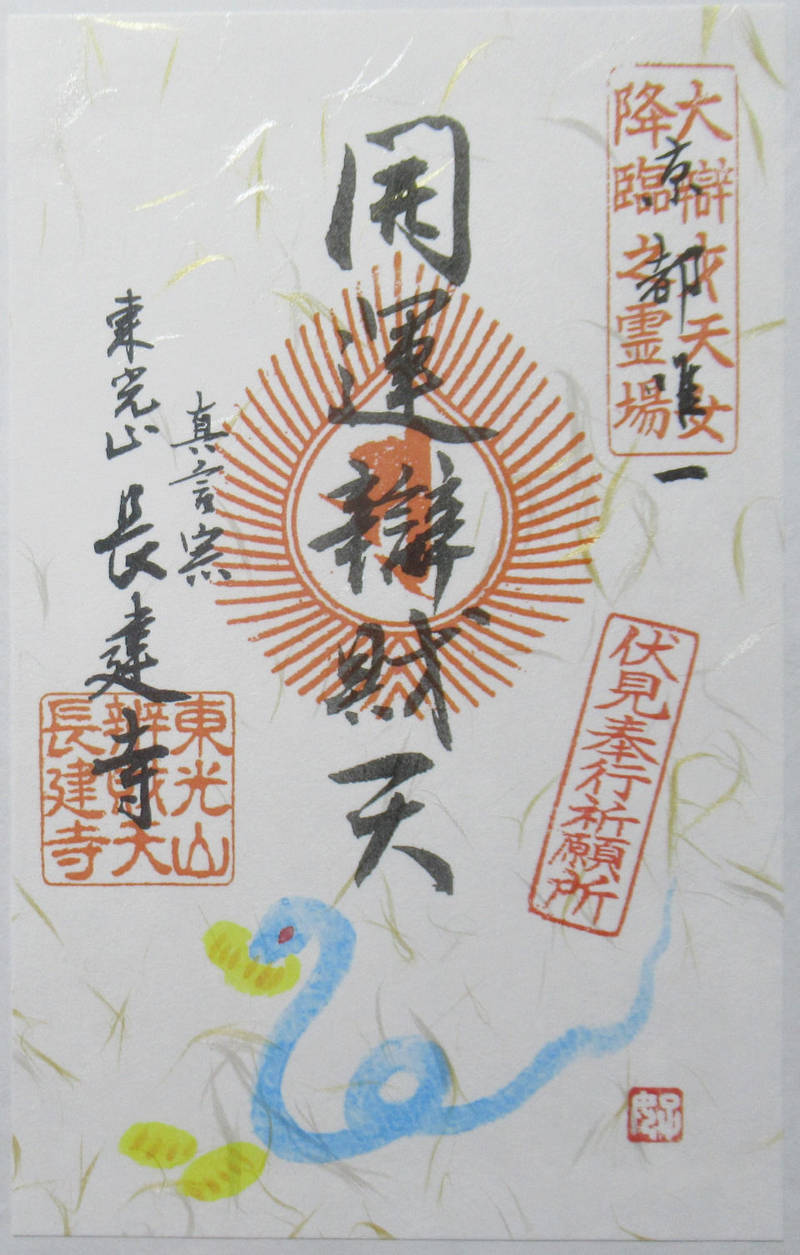 大辯才天女
降臨之霊場
京都唯一
伏見奉行祈願所
開運辯財天
真言宗
東光山 長建寺
東光山
辨財天
長建寺